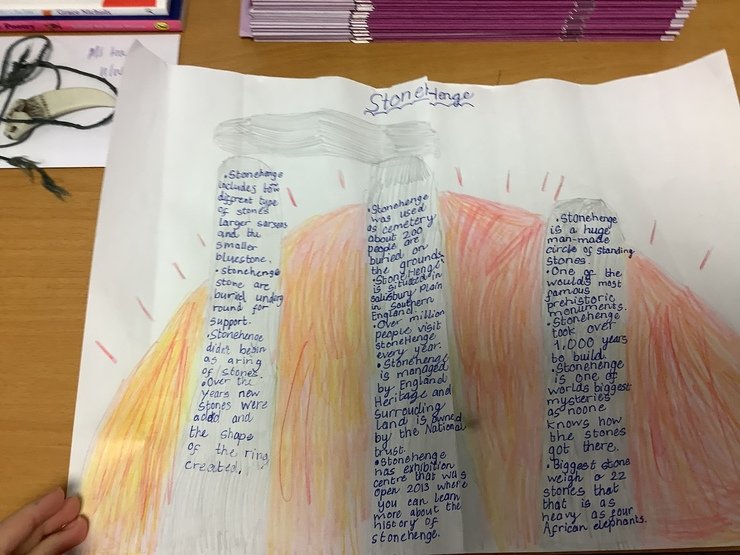 Stonehenge
• Stonehenge
includes tow
diffrent type
of stones
larger sarsens
and the
smaller
bluestone.
• stonehenge
stone are
buried under
round for
support.
• Stonehenge
didn't begin
as aring
of stones.
• Over the
years new
stones were
added and
the shape
of the ring
created.
• Stonehenge
was used
as cemetery
about 200
people are
buried on
the grounds.
• StoneHenge
is situated in
salisbury Plain
in Southern
England.
• Over million
people visit
stoneHenge
every year.
• Stonehenge
is managed
by England
Heritage and
surrouding
land is owned
by the National
trust.
• Stonehenge
has exhibition
centre that was
open 2013 where
you can learn
more about the
history of
stonehenge.
• Stonehenge
is a huge
man-made
circle of standing
stones.
• One of the
woulds most
famous
prehistoric
monuments.
• Stonehenge
took over
1.000 years
to build.
• Stonehenge
is one of
worlds biggest
mysteries
as noone
knows how
the stones
got there.
• Biggest stone
weigh a 22
stones that
that is as
heavy as four
African elephants.